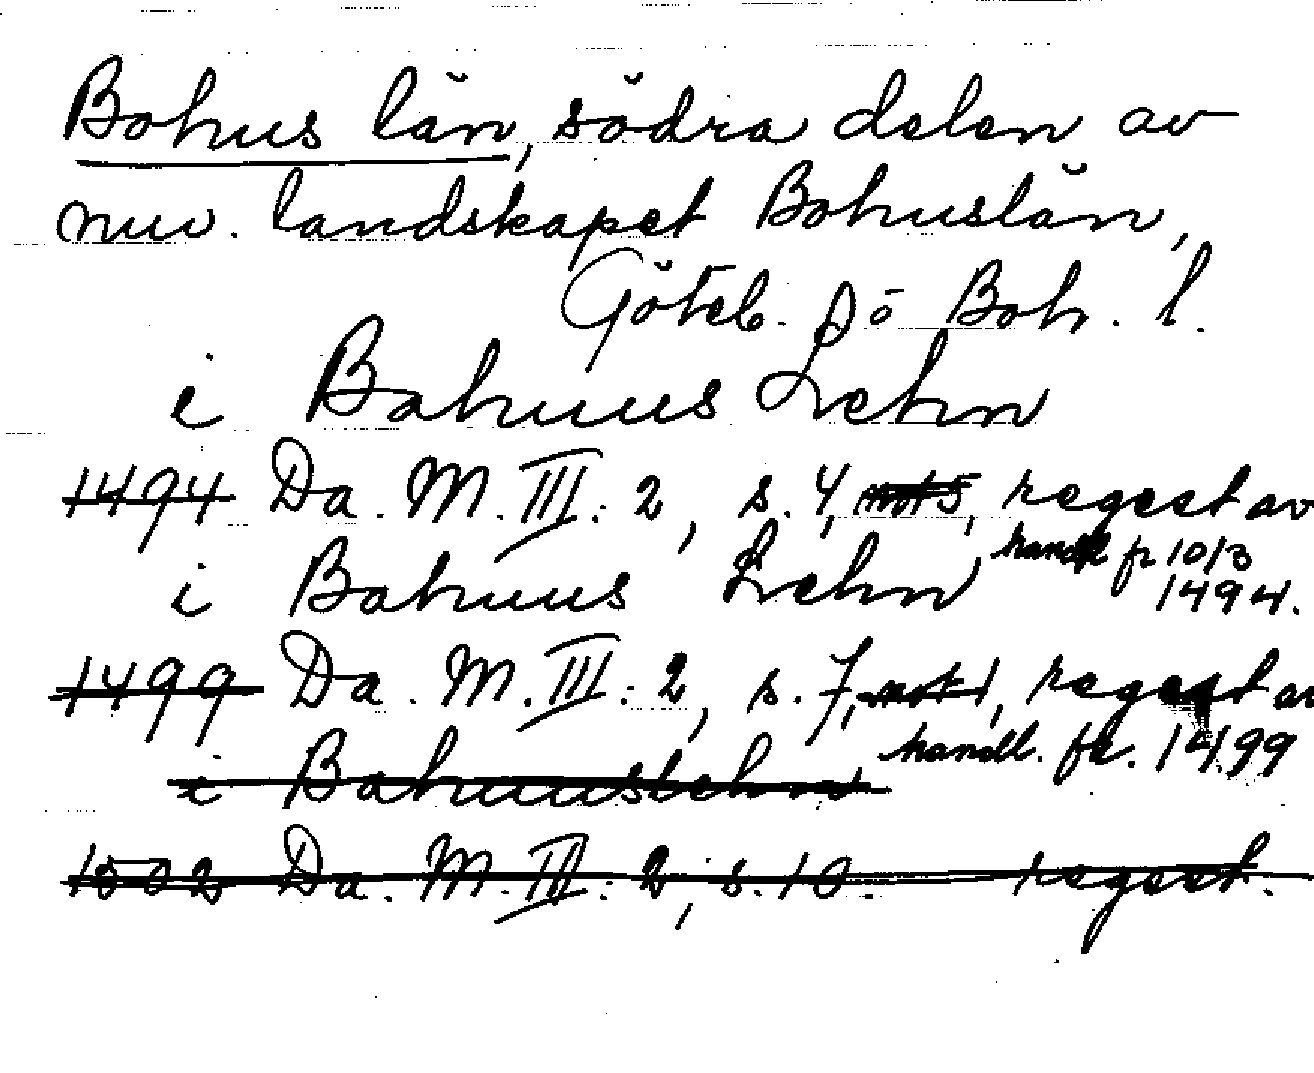 Bohus län, södra delen av
nuv. landskapet Bohuslän,
Göteb. o Boh. l.
i Bahuus Lehn
1494 Da. M. III: 2, s. 4, not 5, regest av
handl fr 10/3
1494.
i Bahuus Lehn
1499 Da. M. III: 2, s. 7, not 1, regest av
handl. fr. 1499
i Bahuuslehn
1502 Da. M. III: 2, s. 10 regest.